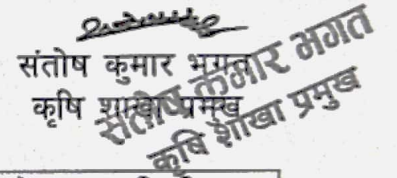 संतोष कुमार भगत
कृषि शाखा प्रमुख
संतोष कुमार भगत
कृषि शाखा प्रमुख